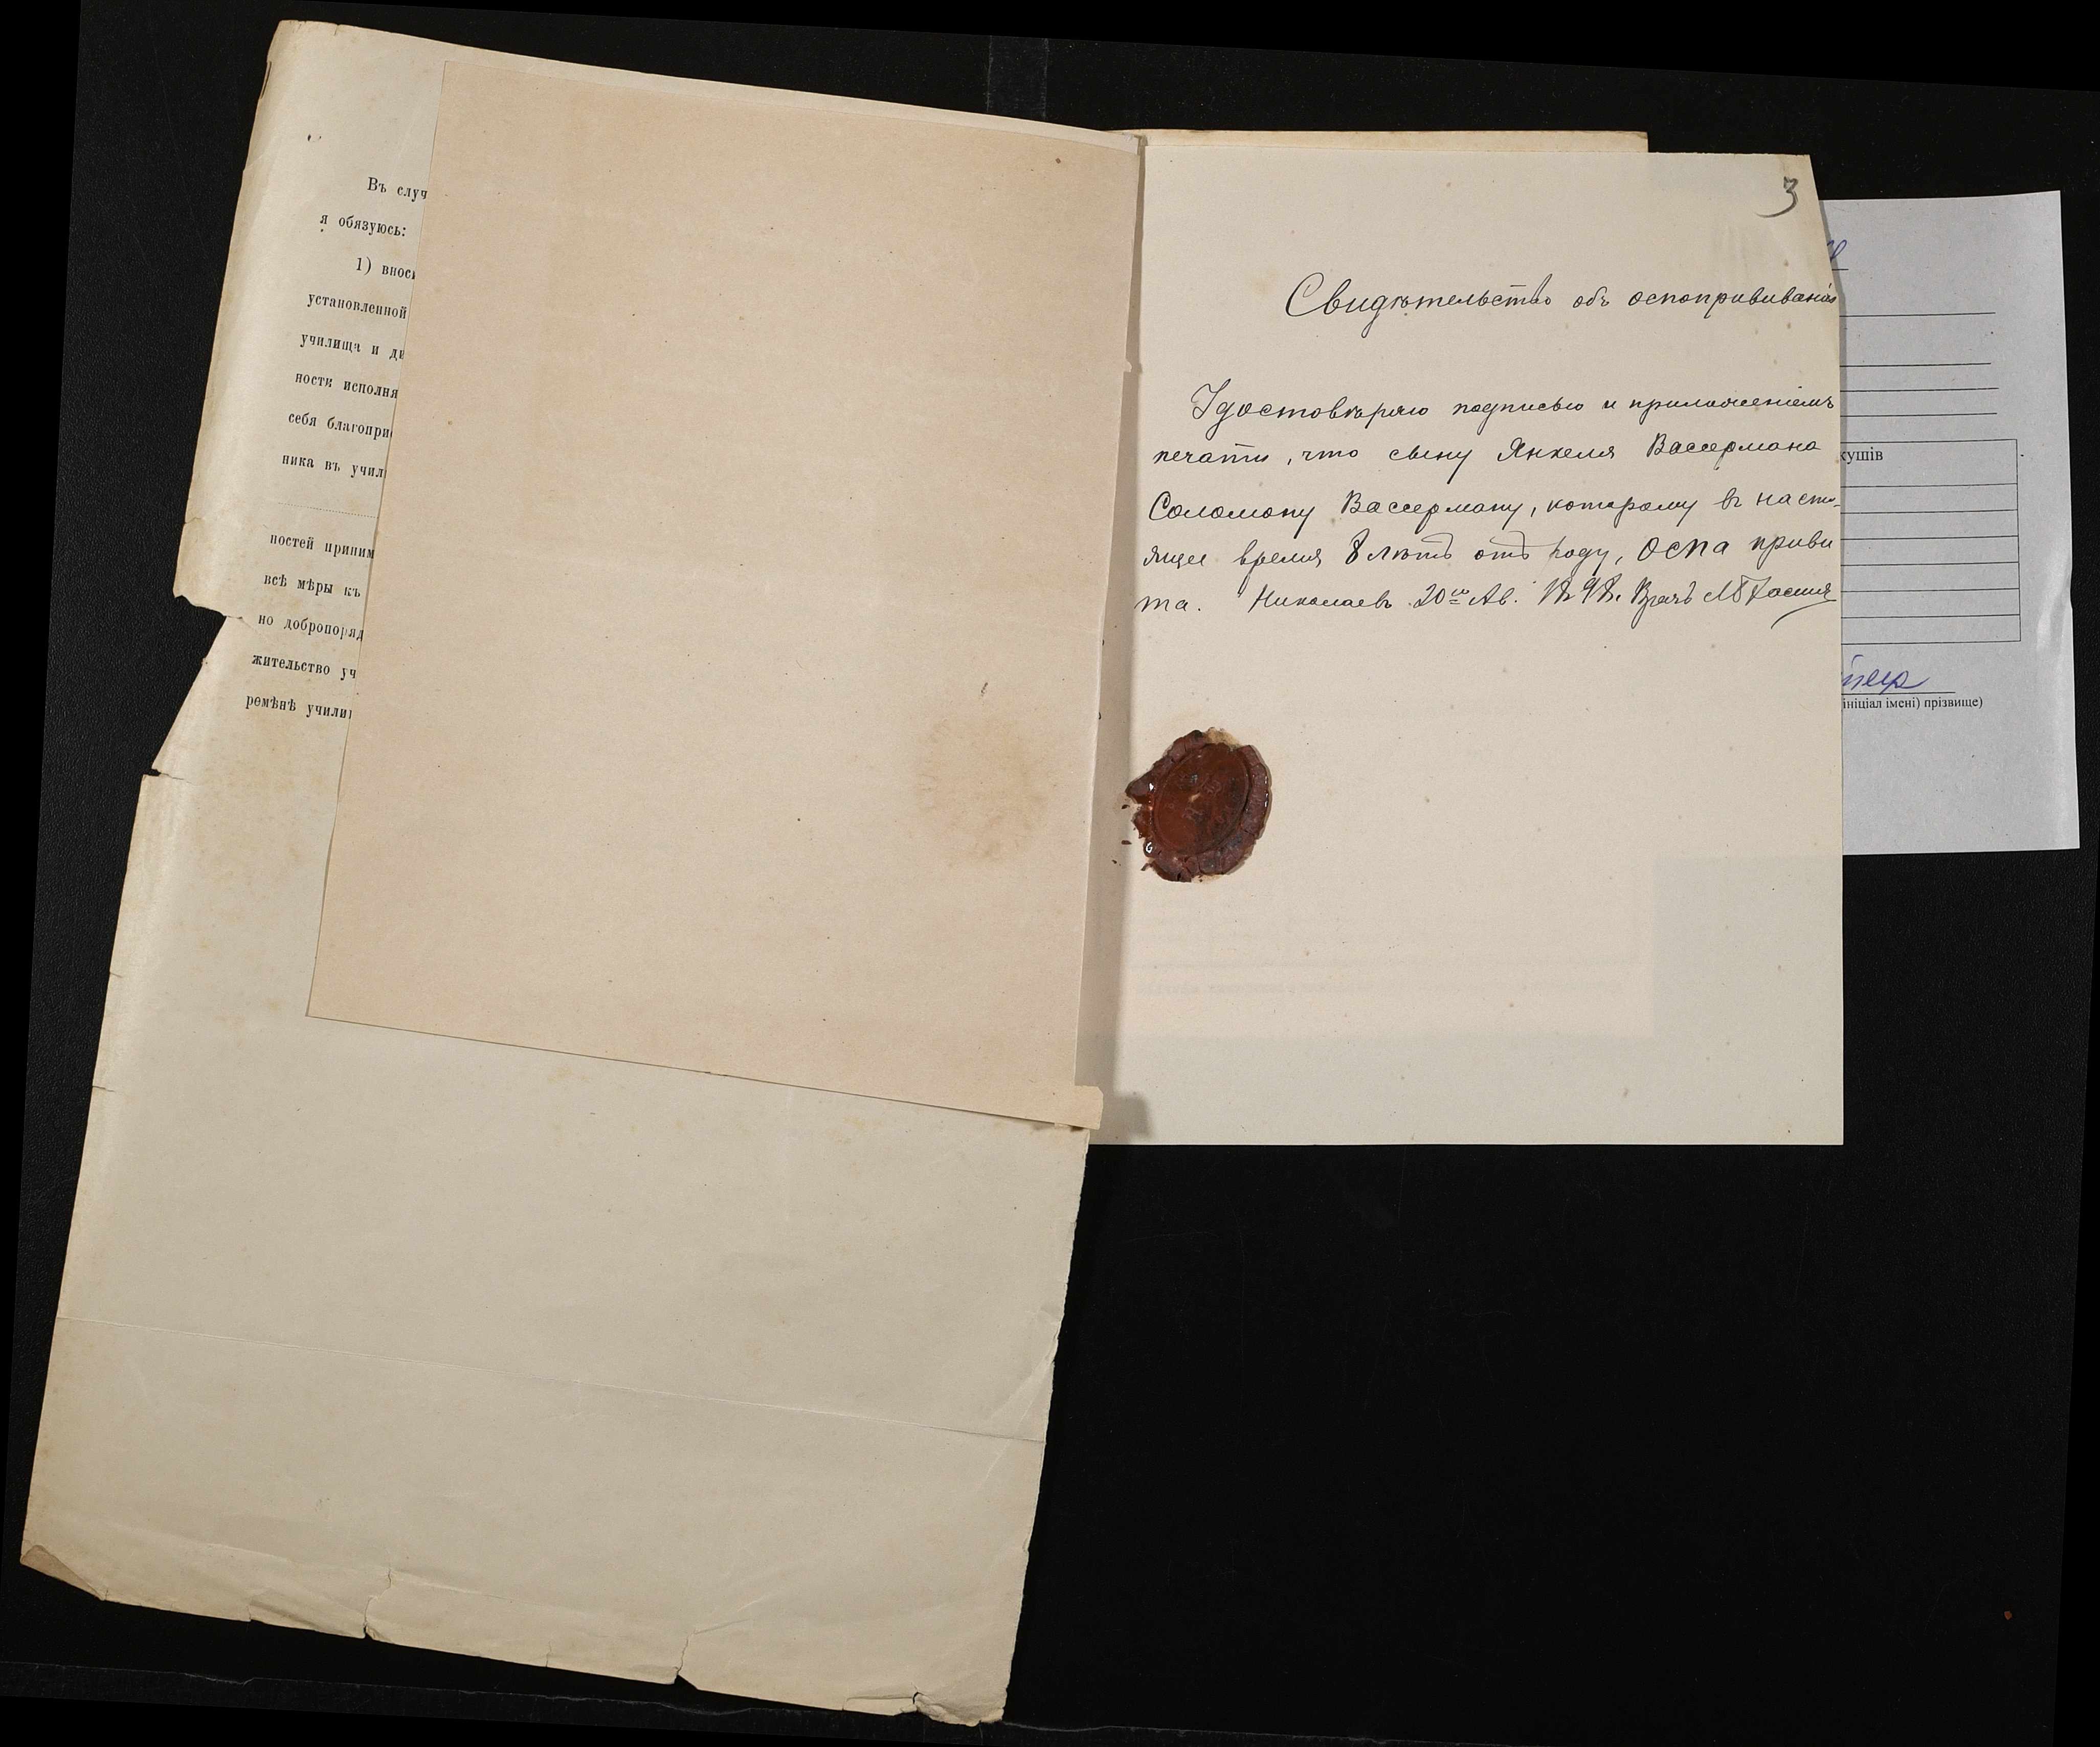 Въ случ
я обязуюсь:
1) вноси
установленной
училища и ди
ности исполня
себя благопри
ника въ учил
ностей приним
всѣ мѣры къ
но добропоряд
жительство уч
ремѣнѣ учили
3
Свидѣтельство объ оспопрививаніи
Удостовѣряю подписью и приложеніемъ
печати, что сыну Янкеля Вассермана
Соломону Вассерману, которому въ насто-
ящее время 8 лѣтъ отъ роду, оспа приви
та. Николаевъ 20го Ав. 1898. Врачъ
кушів
ініціал імені) прізвище)